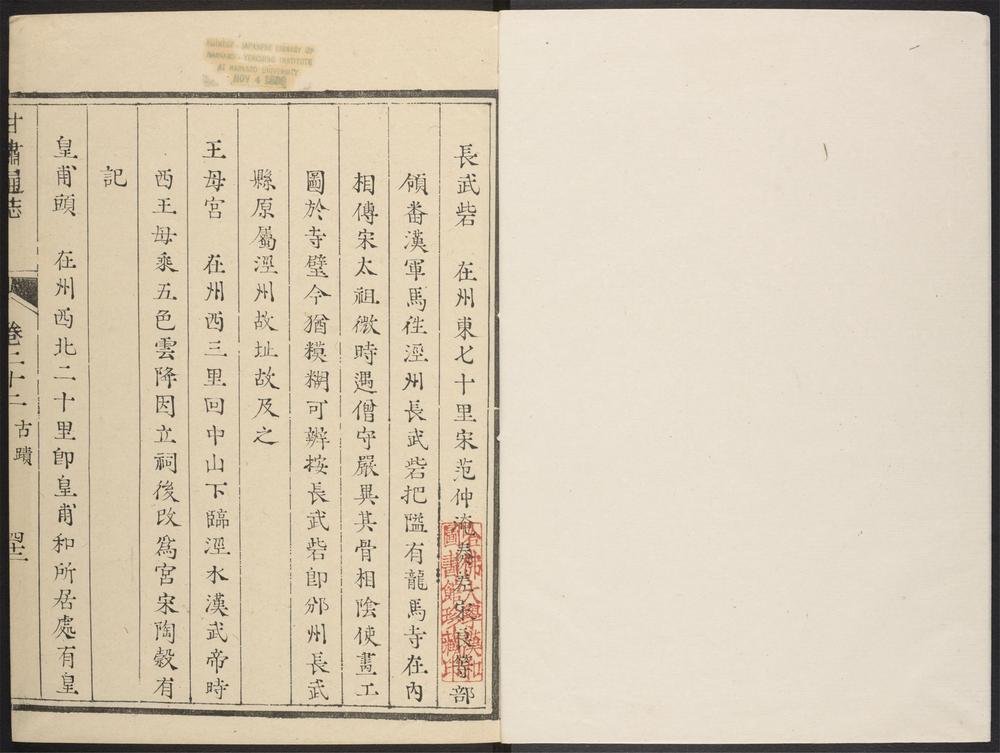 CHINESE - JAPANESE LIBRARY OF
HARVARD - YENCHING INSTITUTE
AT HARVARD UNIVERSITY
NOV 4
長武砦　在州東七十里宋范仲淹奏差宋良等部
領畨漢軍馬徃涇州長武砦把隘有龍馬寺在內
相傳宋太祖微時遇僧守嚴異其骨相陰使畫工
圖於寺壁今猶糢糊可辨按長武砦卽邠州長武
縣原屬涇州故址故及之
王母宮　在州西三里回中山下臨涇水漢武帝時
西王母乘五色雲降因立祠後改爲宮宋陶穀有
記
皇甫頭　在州西北二十里卽皇甫和所居處有皇
甘肅通志
卷二十二　古蹟
哈佛大學漢和
圖書館珍藏印